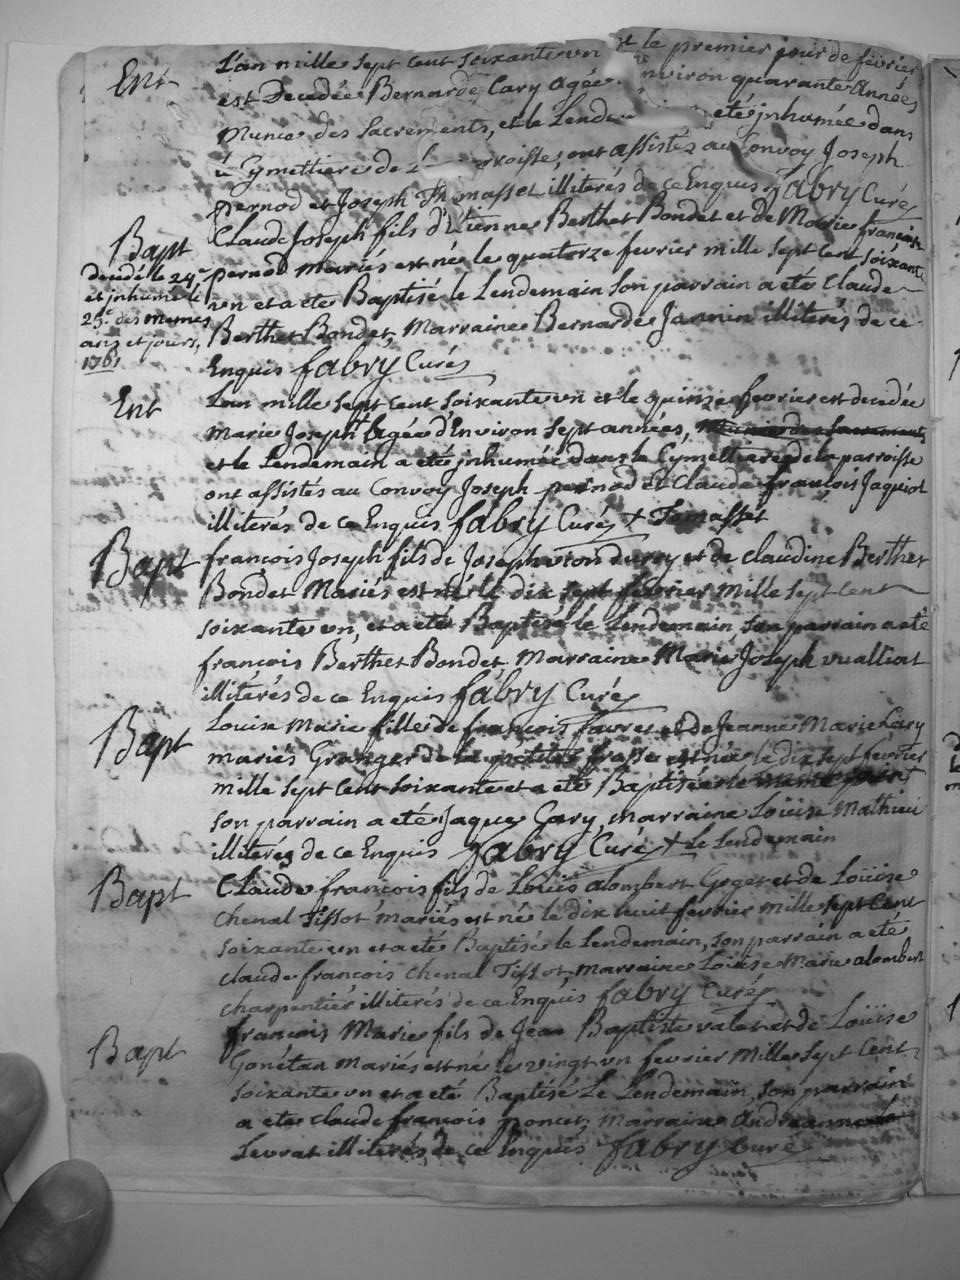 Ent
L'an mille sept cent soixante un et le premier jour de fevrier
est Decedée Bernarde Cary Agée environ quarante Années
Munie des Sacrements, et le Lende eté jnhumée dans
le Cymettiere de roisse, ont assistés au Convoy Joseph
pernod et Joseph Thomasset illiterés de ce Enquis fabry Curé
Bapt
Claude Joseph fils d'Etienne Berthet Bondet et de Marie francoise
pernod Mariés est né le quatorze fevrier mille sept Cent soixant
un et a eté Baptisé le Lendemain son parrain a eté Claude
Berthet Bondet, Marraine Bernarde Jannin illiterés de ce
Enquis fabry Curé
decedé le 24e
et jnhumé le
25e des memes
ans et jours,
1761
Ent
L'an mille sept cent soixante un et le quinze fevrier est decedée
Marie Joseph Agée d'Environ sept années, Munie des Sacrements
et le Lendemain a eté jnhumée dans le Cymettiere de la parroisse
ont assistés au Convoy Joseph pernod et Claude francois Jaquiot
illiterés de ce Enquis fabry Curé + Tomasset
Bapt
francois Joseph fils de Joseph et de Claudine Berthet
Bondet Mariés est né le dix sept fevrier Mille sept Cent
soixante un, et a eté Baptisé le Lendemain, son parrain a eté
francois Berthet Bondet, Marraine Marie Joseph vualliat
illiterés de ce Enquis fabry Curé
Bapt
Louise Marie fille de francois favret et de Jeanne Marie Cary
mariés Granger de la petitte frasse est née le dix sept fevrier
mille sept Cent soixante et a eté Baptisée le meme jour
son parrain a eté Jaque Gary, marraine Loüise Mathieu
illiterés de ce Enquis fabry Curé + Le Lendemain
Bapt
Claude francois fils de Loüis alombert Goget et de Loüise
Chenal Tissot mariés est né le dix huit fevrier mille sept Cent
soixante un et a eté Baptisé le Lendemain, son parrain a eté
claude francois Chenal Tissot marraine Loüise Marie alombert
charpentier illiterés de ce Enquis fabry Curé
Bapt
francois Marie fils de Jean Baptiste valet et de Loüise
Gonétan Mariés est né le vingt un fevrier Mille sept Cent
soixante un et a eté Baptisé Le Lendemain, son parrain
a eté claude francois poncet, marraine Andreanne
Levrat illiterés de ce Enquis fabry Curé